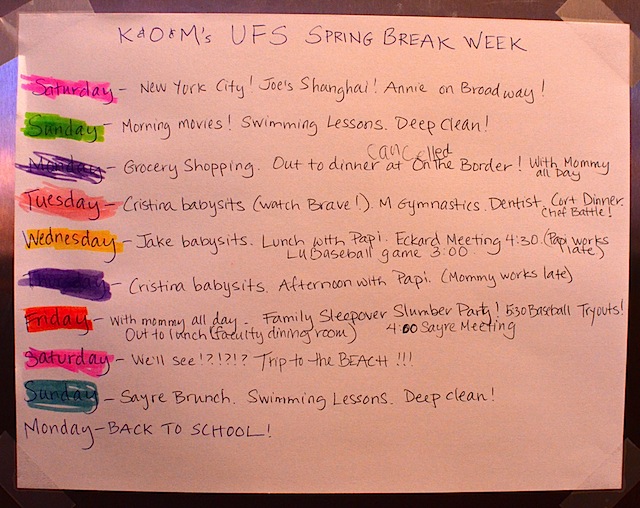 K&O&M's UFS SPRING BREAK WEEK
Saturday - NEW YORK CITY! Joe's Shanghai! Annie on Broadway!
Sunday - Morning movies! Swimming Lessons. Deep Clean!
cancelled
Monday - Grocery Shopping. Out to dinner at On The Border! With Mommy
all Day
Tuesday - Cristina babysits (watch Brave!). M Gymnastics. Dentist. Cort Dinner.
Chef Battle!
Wednesday - Jake babysits. Lunch with Papi. Eckard Meeting 4:30 (Papi works
late)
LU Baseball game 3:00
Thursday - Cristina babysits. Afternoon with Papi. (Mommy works late)
Friday - With mommy all day. Family Sleepover Slumber Party! 5:30 Baseball Tryouts!
Out to lunch (faculty dining room) 4:00 Sayre Meeting
Saturday - We'll see!?!?!? Trip to the BEACH!!!
Sunday - Sayre Brunch. Swimming Lessons. Deep clean!
Monday - BACK TO SCHOOL!